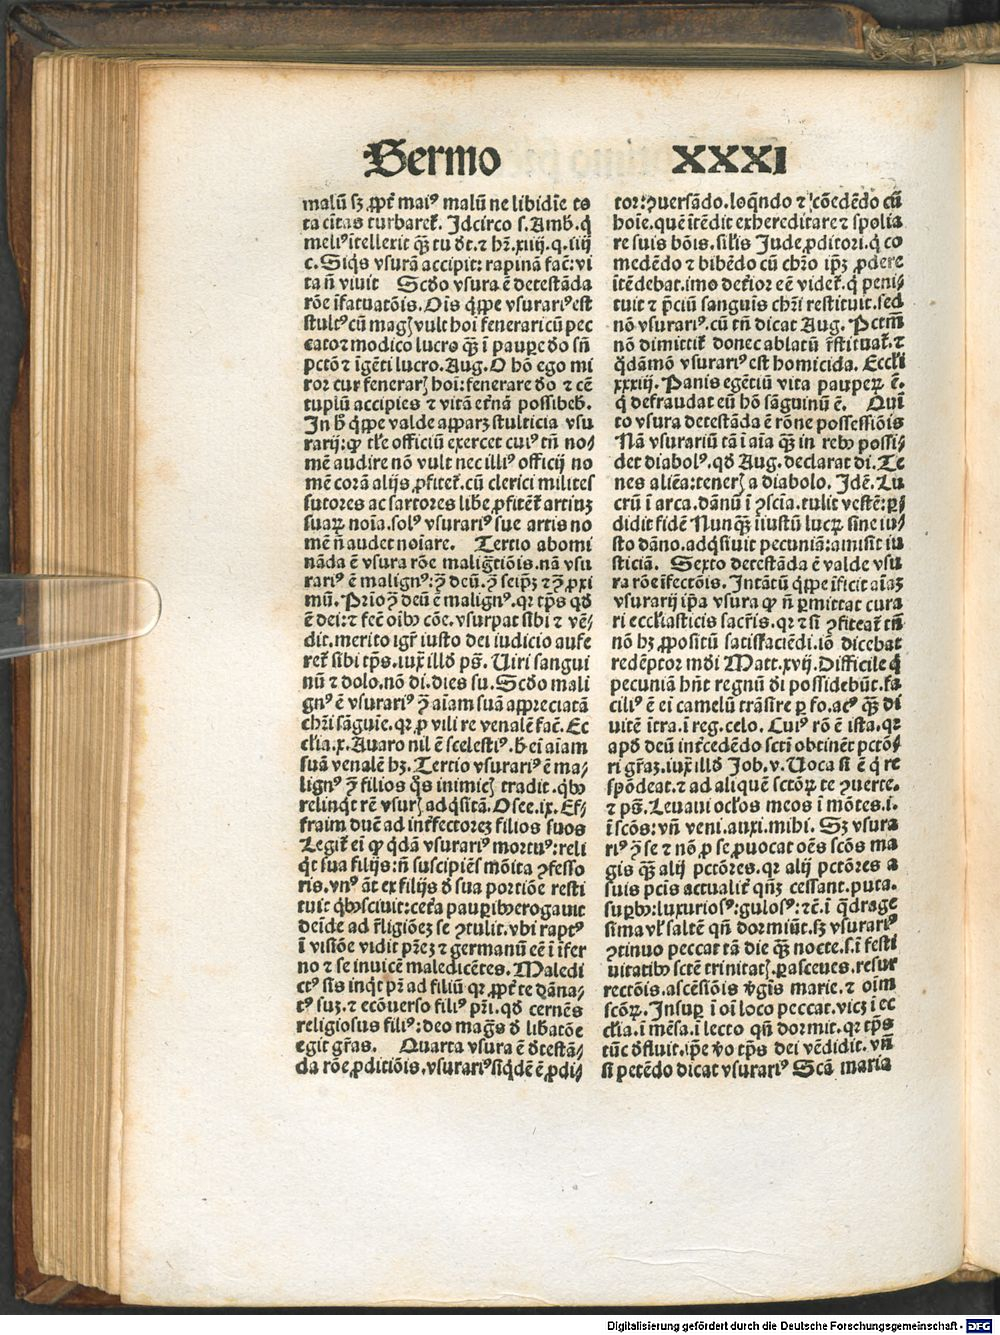 Sermo XXXI
malū sꝫ ꝓpt̄ maiꝰ malū ne libidīe to
ta cīitas turbaret᷑. Idcirco s. Amb. q̇
meliꝰ ītellexit qꝫ̄ tu dt̄. ⁊ hr̄. xiiij. q. iiij
c. Siq̇s vsurā accipit: rapinā fac̄: vi
ta n̄ viuit Scd̓o vsura ē detestāda
rōe īfatuatōis. Oīs q̇ppe vsurariꝰ est
stultꝰ cū magꝭ vult hoī fenerari cū pec
cato ⁊ modico lucro qꝫ̄ ī pauꝑe do sn̄
pctō ⁊ īgēti lucro. Aug. O hō ego mi
ror cur fenerarꝭ hoī: fenerare do ⁊ cē
tuplū accipies ⁊ vitā et̄nā possibeb̓.
In h̓ q̇ppe valde apparꝫ stulticia vsu
rarij: ꝙ tl̄e officiū exercet cuiꝰ tn̄ no⸗
mē audire nō vult nec illiꝰ officij no
mē corā alijs ꝓfitet᷑. cū clerici milites
sutores ac sartores libe ꝓfitēt᷑ artiuꝫ
suaꝝ noīa. solꝰ vsurariꝰ sue artis no
mē n̄ audet noīare. Tertio abomi
nāda ē vsura rōe malig̃tiōis. nā vsu
rariꝰ ē malignꝰ: ꝯ̄ deū. ꝯ̄ seip̄ꝫ ⁊ ꝯ̄ ꝓxi
mū. Prio ꝯ̄ deū ē malignꝰ. qꝛ tp̄s qd̓
ē dei: ⁊ fec̄ oībꝰ cōe. vsurpat sibi ⁊ vē⸗
dit. merito igr̄ iusto dei iudicio aufe
ret᷑ sibi tp̄s. iux̄ illd̓ ps̄. Uiri sangui
nū ⁊ dolo. nō di. dies su. Scd̓o mali
gnꝰ ē vsurariꝰ ꝯ̄ aīam suā appreciatā
chr̄i sāguīe. qꝛ ꝓ vili re venalē fac̄. Ec
cl̄ia. x. Auaro nil ē scelestiꝰ. h̓ eī aīam
suā venalē hꝫ. Tertio vsurariꝰ ē ma⸗
lignꝰ ꝯ̄ filios q̊s inimicꝭ tradit. q̇bꝰ
relinq̇t rē vsurꝭ adq̇sitā. Osee. ix. Ef⸗
fraim ducē ad int̄fectoreꝫ filios suos
Legit᷑ eī ꝙ q̇dā vsurariꝰ mortuꝰ: reli
q̇t sua filijs: n̄ suscipiēs mōita ꝯfesso
ris. vnꝰ āt ex filijs d̓ sua portiōe resti
tuit q̇bꝰ sciuit: cet̄a pauꝑibꝰ erogauit
deīde ad r̄ligiōeꝫ se ꝯtulit. vbi raptꝰ
ī visiōe vidit pr̄eꝫ ⁊ germanū eē ī īfer
no ⁊ se inuicē maledicētes. Maledi
ctꝰ sis inq̇t pr̄ ad filiū qꝛ ꝓpt̄ te dāna⸗
tꝰ suꝫ. ⁊ ecōuerso filiꝰ pr̄i. qd̓ cernēs
religiosus filiꝰ: deo mag̃s d̓ libatōe
egit gr̄as. Quarta vsura ē d̓testā⸗
da rōe ꝓditiōis. vsurariꝰ siq̇dē ē ꝓdi⸗
tor: ꝯuersādo. loq̄ndo ⁊ ꝯ̄cōedēdo cū
hoīe. quē ītēdit exhereditare ⁊ spolia
re suis bōis. sil̄is Jude ꝓditori. q̇ co
medēdo ⁊ bibēdo cū chr̄o ip̄ꝫ ꝓdere
ītēdebat. imo det̄ior eē videt᷑. q̇ peni⸗
tuit ⁊ p̄ciū sanguīs chr̄i restituit. sed
nō vsurariꝰ. cū tn̄ dicat Aug. Pctm̄
nō dimittit᷑ donec ablatū r̄stituat᷑. ⁊
q̇dāmō vsurariꝰ est homicida. Eccl̄i
xxxiij. Panis egētiū vita pauperꝝ ē.
q̇ defraudat eū hō sāguinū ē. Quī
to vsura detestāda ē rōne possessiōis
Nā vsurariū tā ī aīa qꝫ̄ in rebꝰ possi⸗
det diabolꝰ. qd̓ Aug. declarat di. Te
nes aliēa: tenerꝭ a diabolo. Idē. Lu
crū ī arca. dānū ī ꝯscīa. tulit vestē: ꝑ⸗
didit fidē Nunqꝫ̄ īiustū lucꝝ sine iu⸗
sto dāno. adq̇siuit pecuniā: amisit iu
sticiā. Sexto detestāda ē valde vsu
ra rōe īfectōis. Intātū q̇ppe īficit aīaꝫ
vsurarij ip̄a vsura ꝙ n̄ ꝑmittat cura
ri eccl̄iasticis sacr̄is. qꝛ ⁊ si ꝯfiteat᷑ tn̄
nō hꝫ ꝓpositū satisfaciēdi. iō dicebat
redēptor mūdi Matt. xvij. Difficile q̇
pecuniā hn̄t regnū di possidebūt. fa
ciliꝰ ē ei camelū trāsire ꝑ fo. acꝰ qꝫ̄ di
uitē ītra. ī reg. celo. Cuiꝰ rō ē ista. qꝛ
apd̓ deū int̄cedēdo sctī obtinēt pctō⸗
ri gr̄aꝫ. iux̄ illd̓ Job. v. Uoca si ē q̇ re
spōdeat. ⁊ ad aliquē sctōꝝ te ꝯuerte.
⁊ ps̄. Leuaui oclos meos ī mōtes. i.
ī scōs: vn̄ veni. auxi. mihi. Sꝫ vsura
riꝰ ꝯ̄ se ⁊ nō ꝓ se ꝓuocat oēs scōs ma
gis qꝫ̄ alij pctōres. qꝛ alij pctōres a
suis pctīs actualit᷑ qn̄qꝫ cessant. puta.
suꝑbꝰ: luxuriosꝰ: gulosꝰ: ⁊c̄. ī q̇drage
sima vl̄ saltē qn̄ dormiūt. sꝫ vsurariꝰ
ꝯtinuo peccat tā die qꝫ̄ nocte. s. ī festi
uitatibꝰ sctē trinitatꝭ. parasceues. resur
rectōis. ascēsiōis v̓gīs marie. ⁊ oīm
scōꝝ. Insuꝑ ī oī loco peccat. vicꝫ ī ec
cl̄ia. ī mēsa. ī lecto qn̄ dormit. qꝛ tp̄s
tūc d̓fluit. ip̄e v̓o tp̄s dei vēdidit. vn̄
si petēdo dicat vsurariꝰ Scā maria
Digitalisierung gefördert durch die Deutsche Forschungsgemeinschaft - DFG